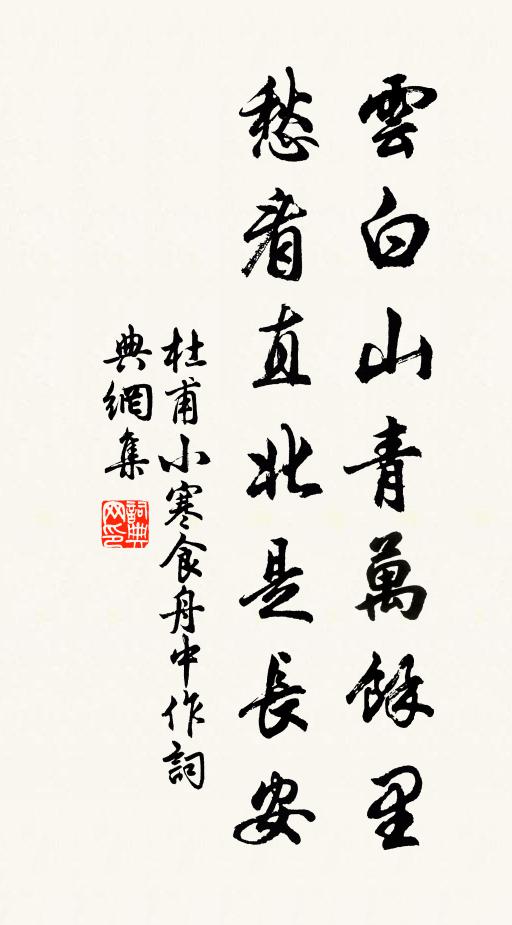 雲白山青萬餘里
愁看直北是長安
杜甫小寒食舟中作詞
典網集
詞典
网印